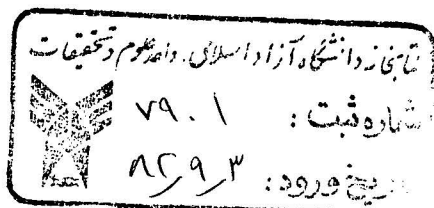 کتابخانه دانشگاه آزاد اسلامی واحد علوم و تحقیقات
شماره ثبت : ۷۹۰۱
تاریخ ورود : ۸۲٫۹٫۳